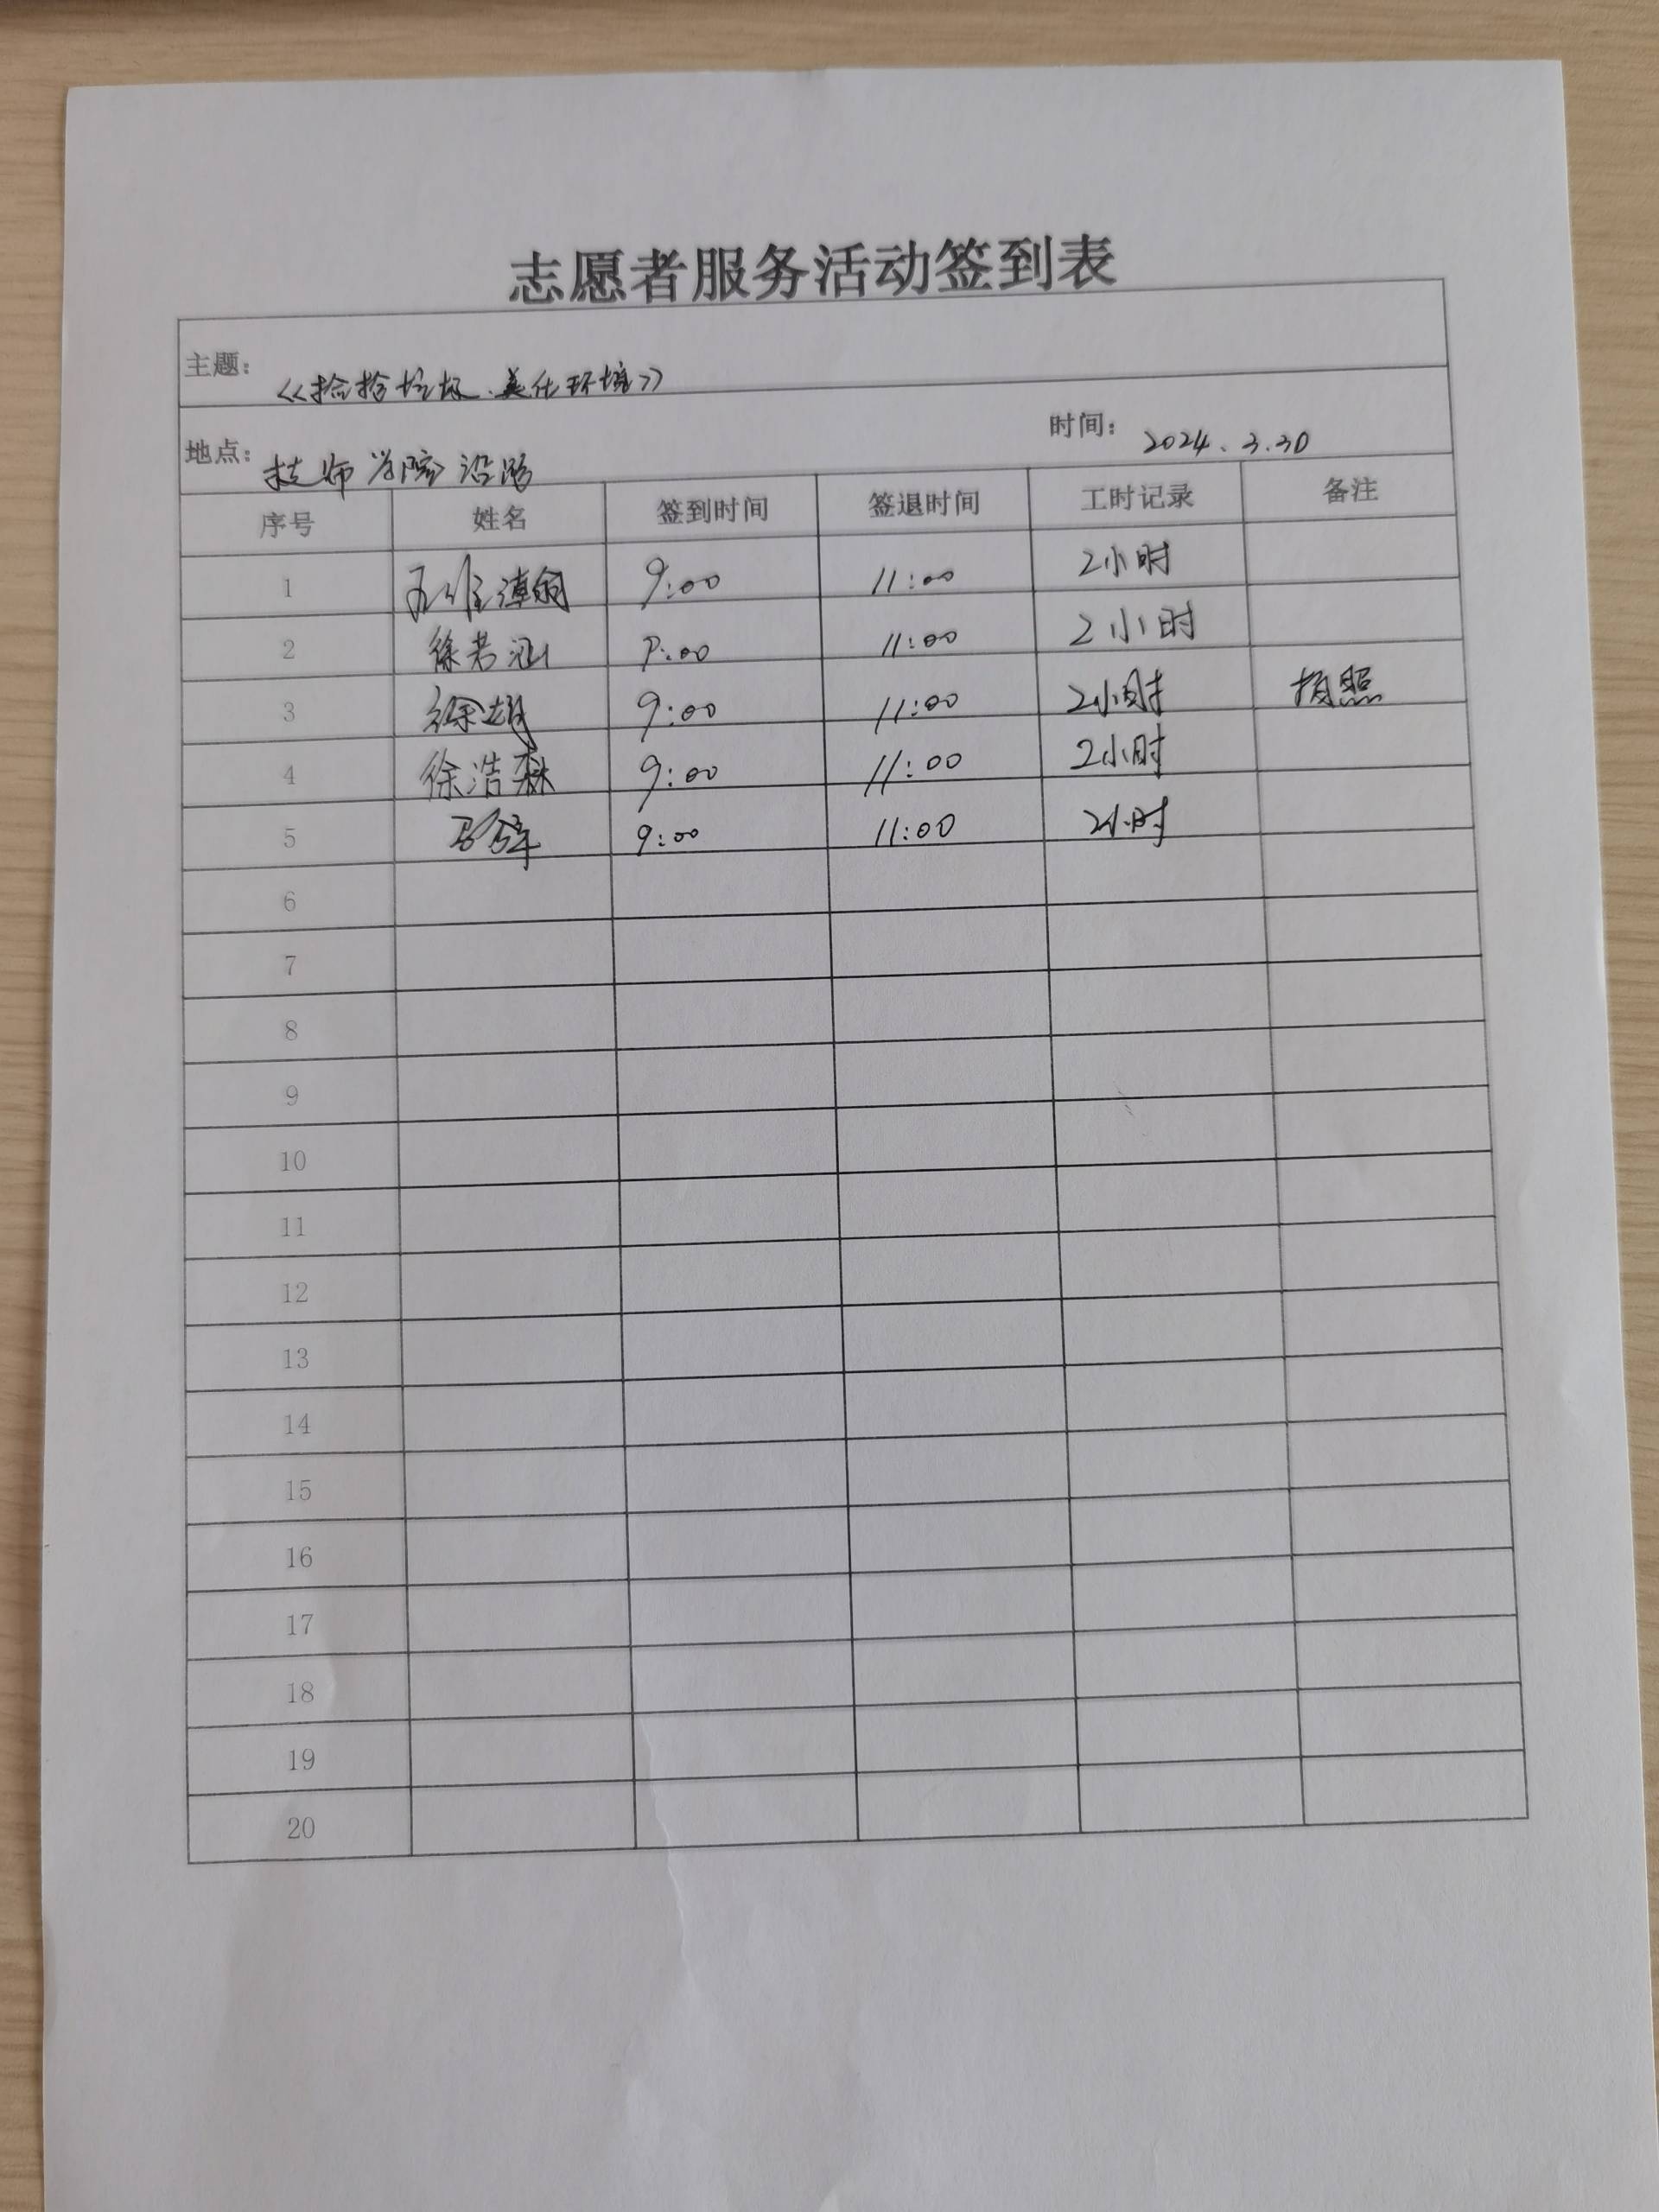 志愿者服务活动签到表
主题： 《捡拾垃圾.美化环境》
地点： 技师学院沿路 时间： 2024.3.30
序号 姓名 签到时间 签退时间 工时记录 备注
1 9:00 11:00 2小时
2 徐若涵 9:00 11:00 2小时
3 9:00 11:00 2小时 拍照
4 徐浩森 9:00 11:00 2小时
5 9:00 11:00 2小时
6
7
8
9
10
11
12
13
14
15
16
17
18
19
20